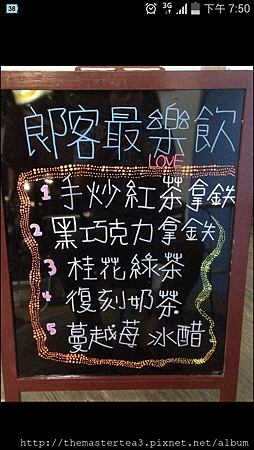 38 3G 下午 7:50
郎客最樂飲
LOVE
1 手炒紅茶拿鉄
2 黑巧克力拿鉄
3 桂花綠茶
4 復刻奶茶
5 蔓越莓冰醋
http://themastertea3.pixnet.net/album